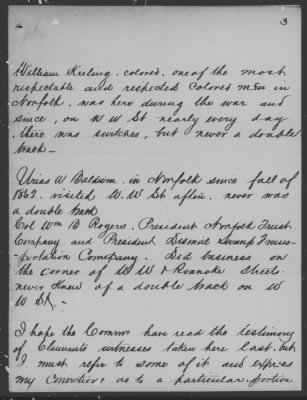 3
William Keeling. colored. one of the most
respectable and respected colored men in
Norfolk. was here during the war and
since, on W W St nearly every day
. there was switches, but never a double
track —
Urias W Baldwin. in Norfolk since fall of
1862. visited W. W St often. never was
a double track
Col Wm B Rogers. President Norfolk Trust
Company and President Dismal Swamp Trans-
portation Company. Did business on
the corner of W W & Roanoke Streets.
never knew of a double track on W
W St. —
I hope the Comrs have read the testimony
of Claimants witnesses taken here last. but
I must refer to some of it and express
my as to a particular portion